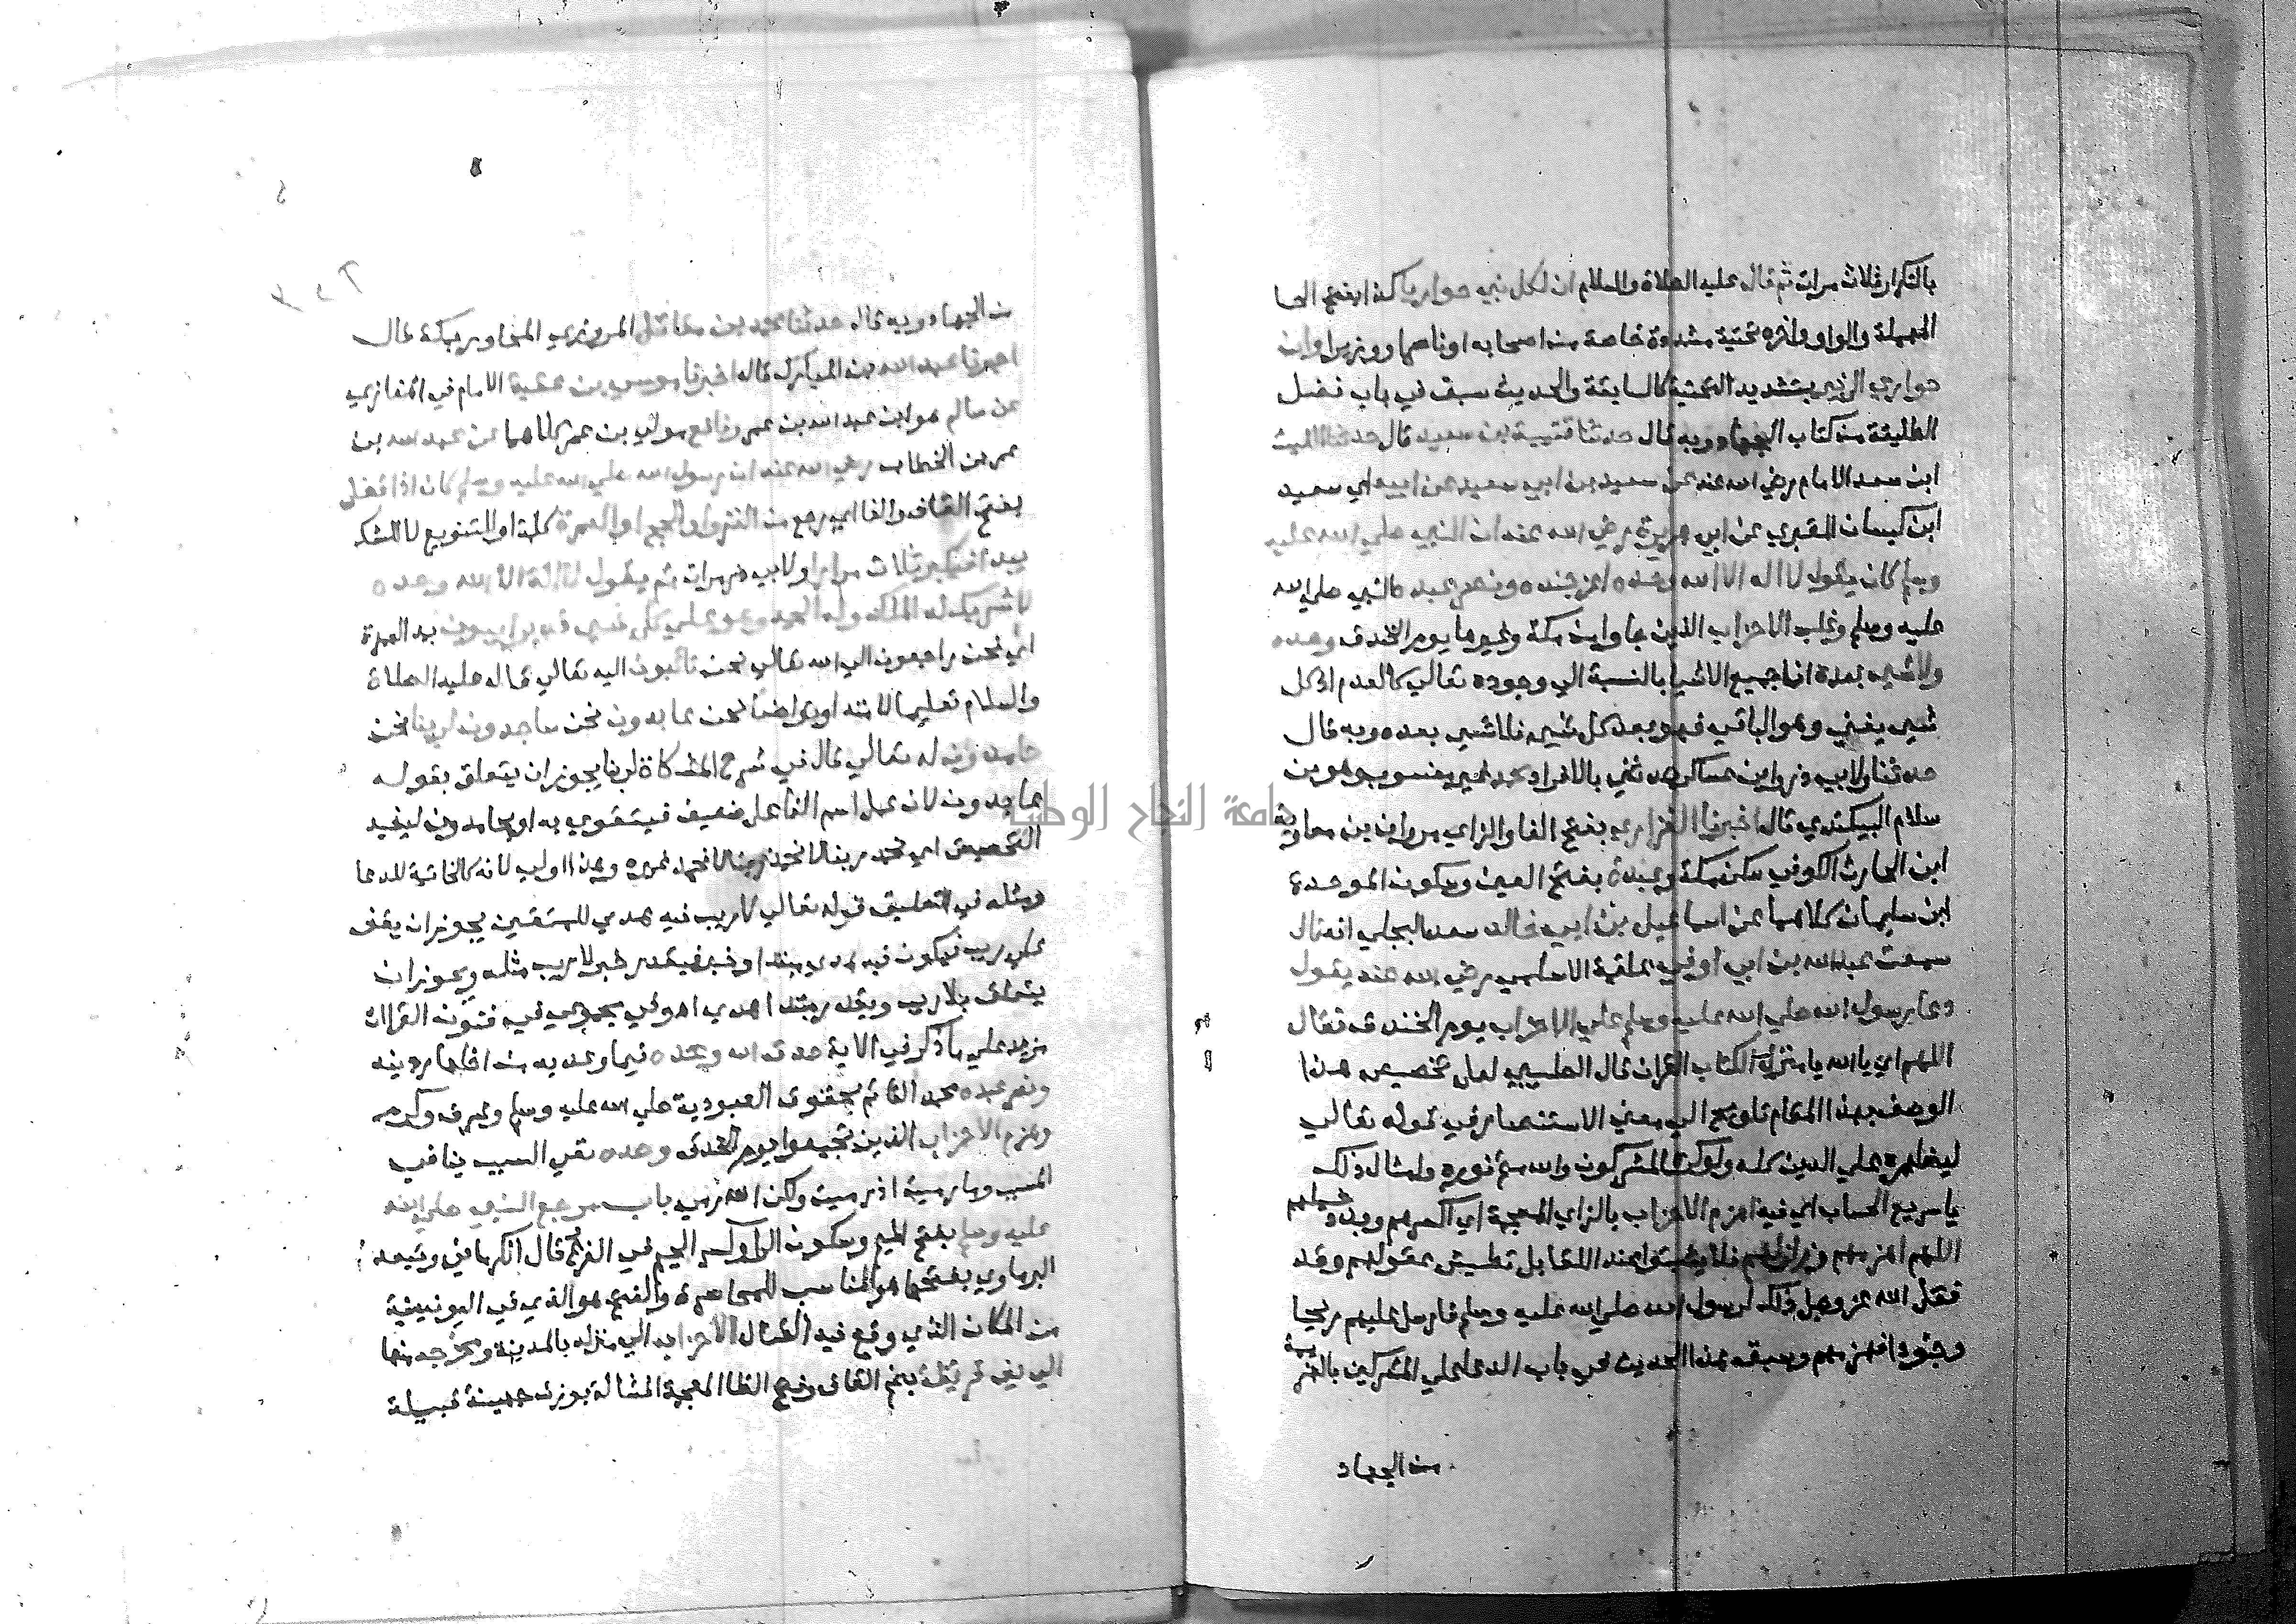 بالتكرار ثلاث مرات ثم قال عليه الصلاة والسلام ان لكل نبي حواريا كذا بفتح الحا
المهملة والواو واخره تحتية مشددة خاصة من اصحابه او ناصرا ووزيرا وان
حواري الزبير بتشديد التحتية كالسابقة والحديث سبق في باب فضل
الطليعة من كتاب الجهاد وبه قال حدثنا قتيبة بن سعيد قال حدثنا الليث
ابن سعد الامام رضي الله عنه عن سعيد بن ابي سعيد عن ابيه ابي سعيد
ابن كيسان المقبري عن ابي هريرة رضي الله عنه ان النبي صلي الله عليه
وسلم كان يقول لا اله الا الله وحده اعز جنده ونصر عبده النبي صلي الله
عليه وسلم وغلب الاحزاب الذين جاوا من مكة وغيرها يوم الخندق وحده
ولا شي بعده اي جميع الاشيا بالنسبة الي وجوده تعالي كالعدم اذ كل
شي يفني وهو الباقي فهو بعد كل شي فلا شي بعده وبه قال
حدثنا ولابي ذر وابن عساكر حدثني بالافراد محمد غير منسوب وهو بن
سلام البيكندي قال اخبرنا الفزاري بفتح الفا والزاي مروان بن معاوية
ابن الحارث الكوفي سكن مكة وعبدة بفتح العين وسكون الموحدة
ابن سليمان كلاهما عن اسماعيل بن ابي خالد سعد البجلي انه قال
سمعت عبد الله بن ابي اوفي علقمة الاسلمي رضي الله عنه يقول
دعا رسول الله صلي الله عليه وسلم علي الاحزاب يوم الخندق فقال
اللهم اي يا الله يا منزل الكتاب القران قال الطيبي لعل تخصيص هذا
الوصف بهذا المقام تلويح الي معني الاستنصار في قوله تعالي
ليظهره علي الدين كله ولو كره المشركون والله متم نوره وامثال ذلك
يا سريع الحساب اي فيه اهزم الاحزاب بالزاي المعجمة اي اكسرهم وبدد شملهم
اللهم اهزمهم وزلزلهم فلا يثبتوا عند اللقا بل تطيش عقولهم وقد
فعل الله عز وجل ذلك لرسول الله صلي الله عليه وسلم فارسل عليهم ريحا
وجنودا فهزمهم وسبق هذا الحديث في باب الدعا علي المشركين بالهزيمة
من الجهاد
من الجهاد وبه قال حدثنا محمد بن مقاتل المروزي المجاور بمكة قال
اخبرنا عبد الله بن المبارك قال اخبرنا موسي بن عقبة الامام في المغازي
عن سالم هو ابن عبد الله بن عمر ونافع مولي بن عمر كلاهما عن عبد الله بن
عمر بن الخطاب رضي الله عنه ان رسول الله صلي الله عليه وسلم كان اذا قفل
بفتح القاف والفا اي رجع من الغزو او الحج او العمرة كلمة او للتنويع لا للشك
يبدا فيكبر ثلاث مرار ولابي ذر مرات ثم يقول لا اله الا الله وحده
لا شريك له له الملك وله الحمد وهو علي كل شي قدير ايبون بمد الهمزة
اي نحن راجعون الي الله تعالي نحن تائبون اليه تعالي قاله عليه الصلاة
والسلام تعليما لامته او تواضعا نحن عابدون نحن ساجدون لربنا نحن
حامدون له تعالي قال في شرح المشكاة لربنا يجوز ان يتعلق بقوله
عابدون لان عمل اسم الفاعل ضعيف فيتقوي به او بحامدون ليفيد
التخصيص اي نحمد ربنا لا نحمد غيره وهذا اولي لانه كالخاتمة للدعا
ومثله في التعليق قوله تعالي لا ريب فيه هدي للمتقين يجوز ان يقف
علي ريب فيكون فيه هدي مبتدا وخبر فيقدر خبر لا ريب مثله ويجوز ان
يتعلق بلا ريب ويقدر مبتدا لهدي اه وفي مجموعي في فنون القراات
مزيد علي ما ذكر في الاية صدق الله وعده فيما وعد به من اظهار دينه
ونصر عبده محمد القائم بحقوق العبودية صلي الله عليه وسلم وشرف وكرم
وهزم الاحزاب الذين تجمعوا يوم الخندق وحده نفي السبب ينافي
المسبب وما رميت اذ رميت ولكن الله رمي باب مرجع النبي صلي الله
عليه وسلم بفتح الميم وسكون الرا وكسر الجيم في الفرع قال الكرماني وتبعه
البرماوي بفتحها هو المناسب للمحاصرة والفتح هو الذي في اليونينية
من المكان الذي وقع فيه القتال الاحزاب الي منزله بالمدينة ومخرجه منها
الي بني قريظة بضم القاف وفتح الظا المعجمة المشالة بوزن جهينة قبيلة
جامعة النجاح الوطنية